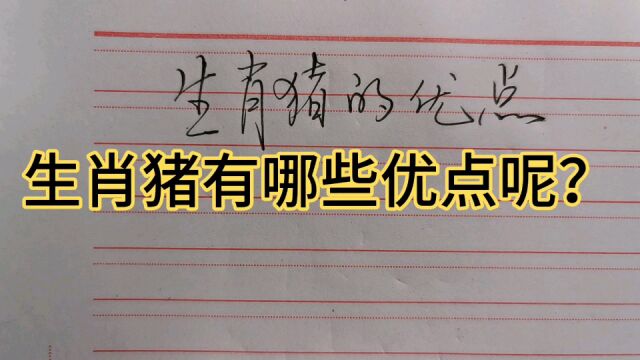 生肖猪的优点
生肖猪有哪些优点呢？